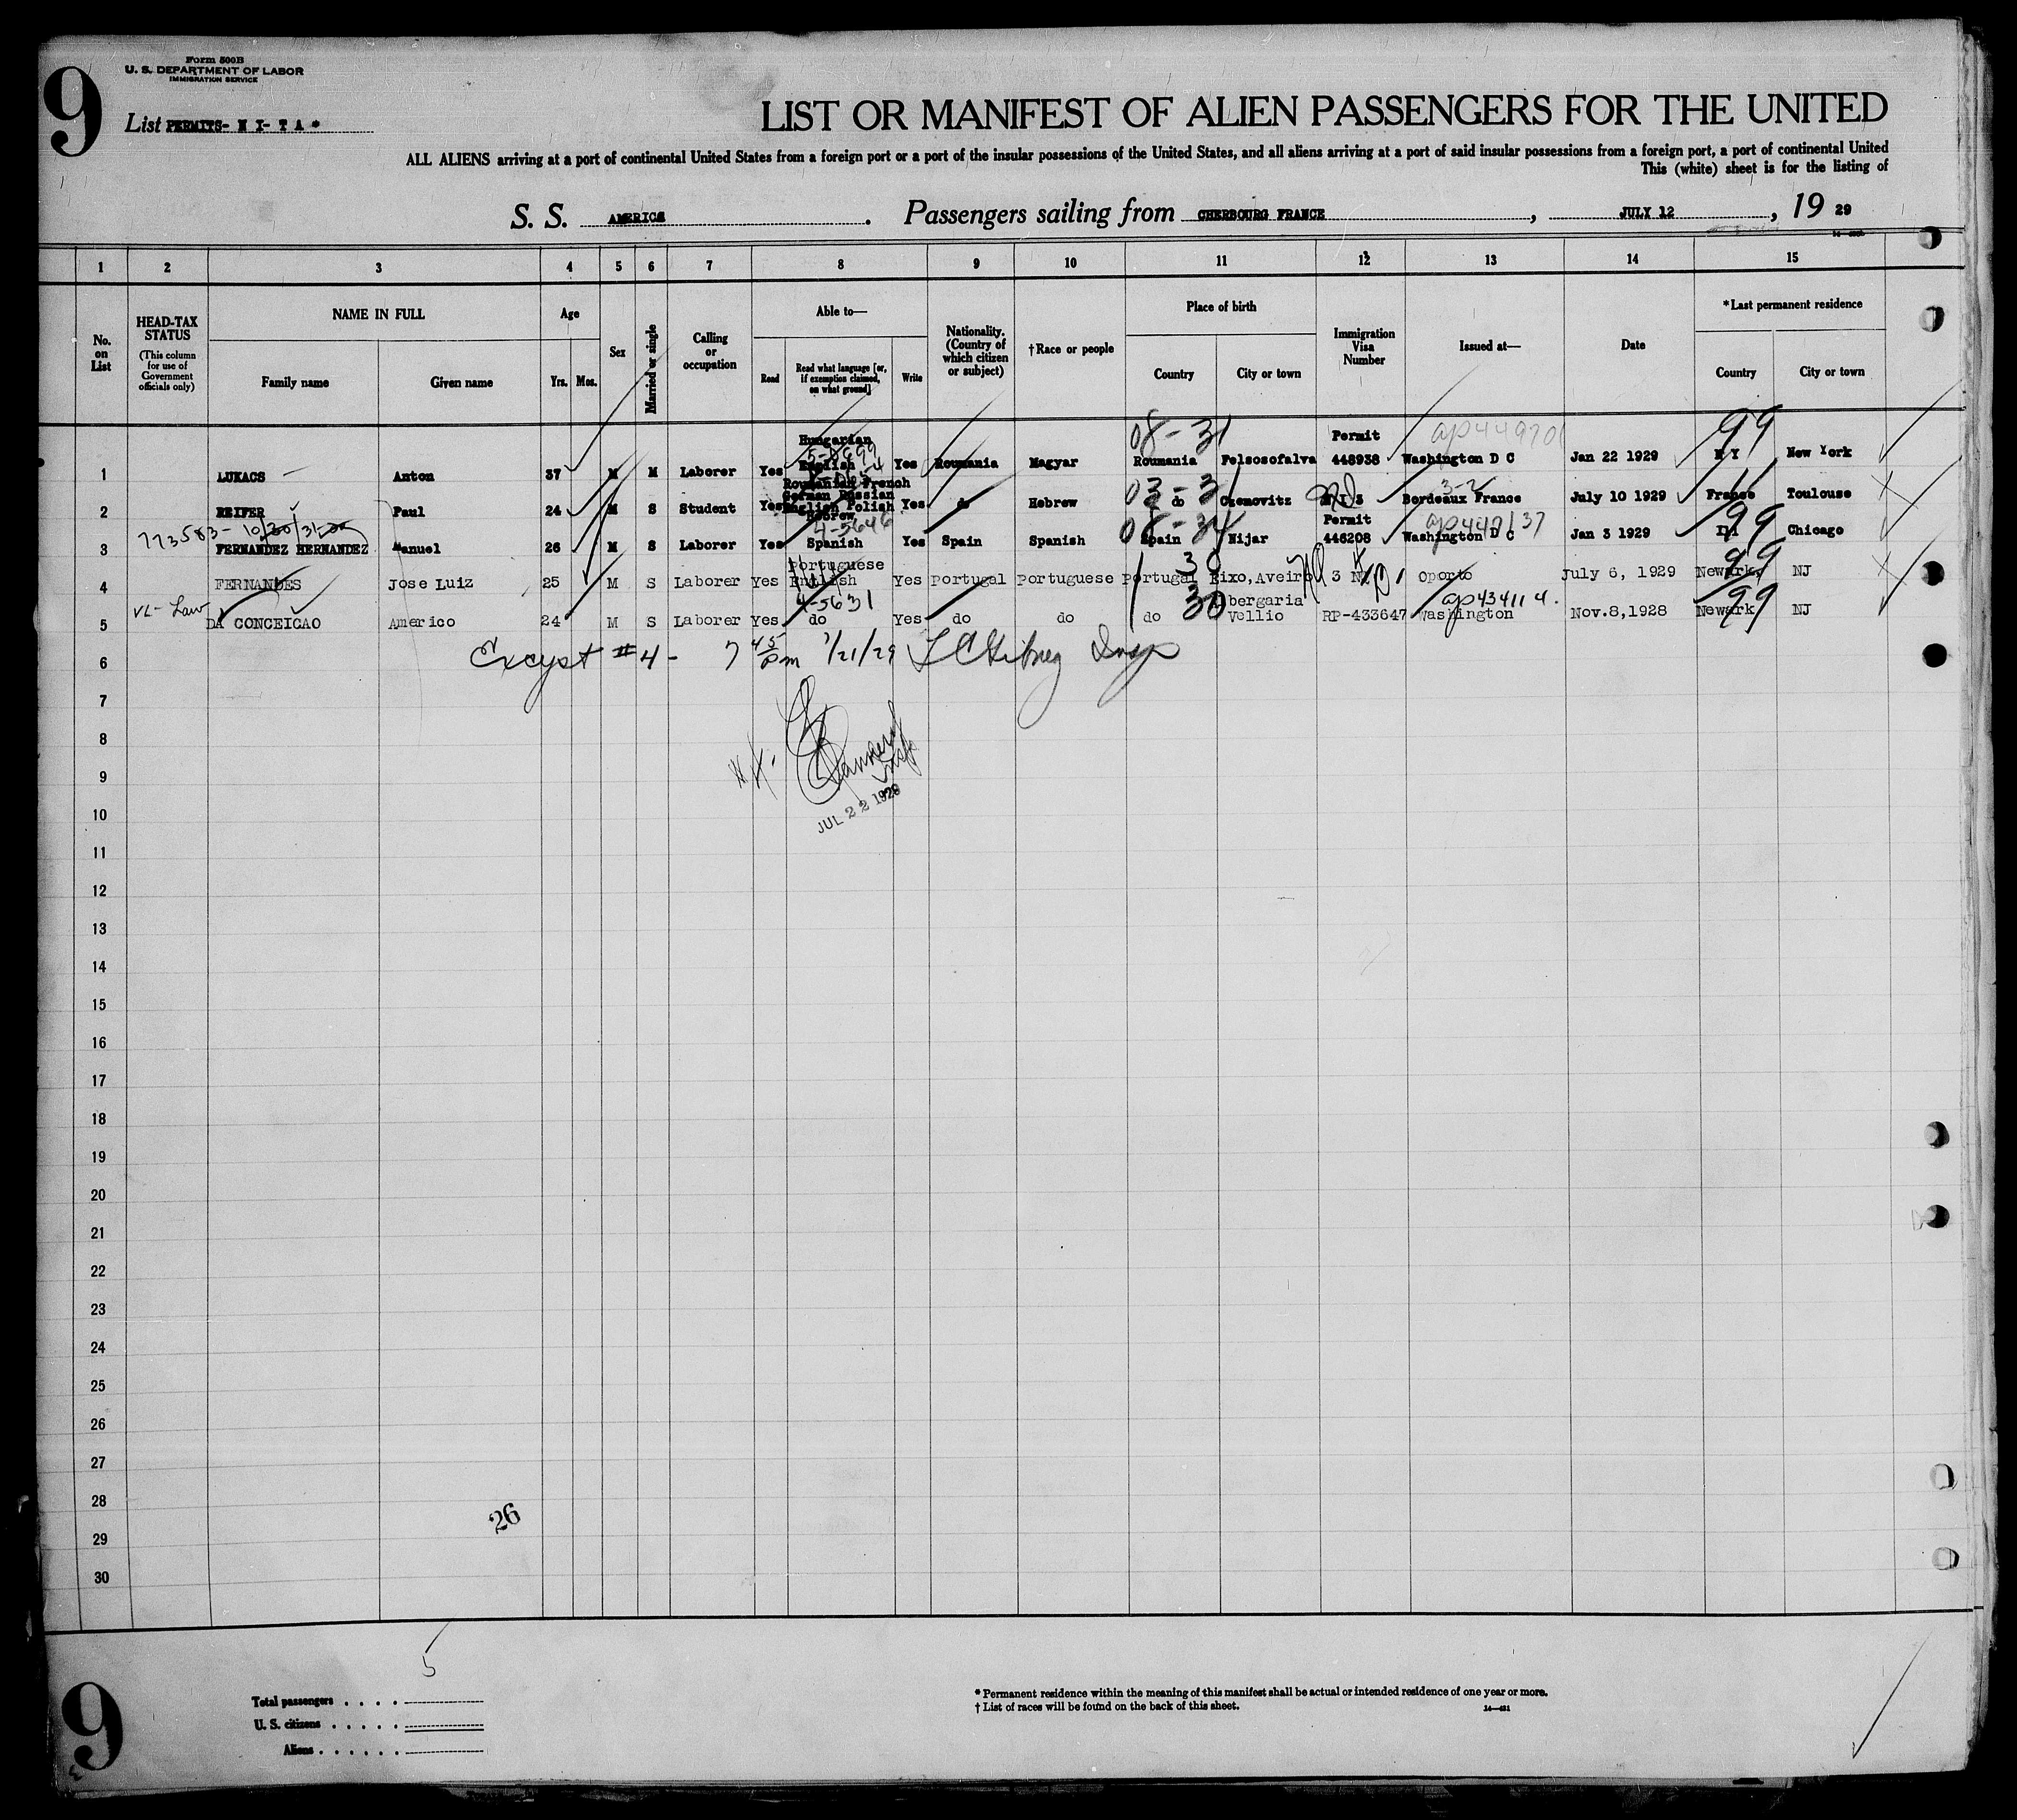 9
Form 500B
U. S. DEPARTMENT OF LABOR
IMMIGRATION SERVICE
List PERMITS- N Y- T A *
LIST OR MANIFEST OF ALIEN PASSENGERS FOR THE UNITED
ALL ALIENS arriving at a port of continental United States from a foreign port or a port of the insular possessions of the United States, and all aliens arriving at a port of said insular possessions from a foreign port, a port of continental United
This (white) sheet is for the listing of
S. S. AMERICA. Passengers sailing from CHERBOURG FRANCE, JULY 12, 19 29
1 2 3 4 5 6 7 8 9 10 11 12 13 14 15
No. on List
HEAD-TAX STATUS
(This column for use of Government officials only)
NAME IN FULL
Family name Given name
Age
Yrs. Mos.
Sex
Married or single
Calling or occupation
Able to—
Read
Read what language [or, if exemption claimed, on what ground]
Write
Nationality. (Country of which citizen or subject)
†Race or people
Place of birth
Country City or town
Immigration Visa Number
Issued at—
Date
*Last permanent residence
Country City or town
08-31 Permit 99
1 LUKACS Anton 37 M M Laborer Yes Hungarian English Yes Roumania Magyar Roumania Felsosofalva 448938 Washington D C Jan 22 1929 N Y New York
03-31 3-2
2 REIFER Paul 24 M S Student Yes Roumanian French German Russian English Polish Hebrew Yes do Hebrew do Czernovitz Bordeaux France July 10 1929 France Toulouse
773583- 10/30/31 4-5646 Permit ap 449137 99
3 FERNANDEZ HERNANDEZ Manuel 26 M S Laborer Yes Spanish Yes Spain Spanish Spain Nijar 446208 Washington D C Jan 3 1929 Ill Chicago
4 FERNANDES Jose Luiz 25 M S Laborer Yes Portuguese English Yes Portugal Portuguese Portugal Eixo, Aveiro 3 Oporto July 6, 1929 Newark, NJ
4-5631 30 ap 434114. 99
5 DA CONCEICAO Americo 24 M S Laborer Yes do Yes do do do Albergaria Vellio RP-433647 Washington Nov.8,1928 Newark NJ
6 #4 - 7 45 pm 7/21/29 Insp
7
8
9
JUL 22 1929
10
11
12
13
14
15
16
17
18
19
20
21
22
23
24
25
26
27
28
26
29
30
5
Total passengers
U. S. citizens
Aliens
* Permanent residence within the meaning of this manifest shall be actual or intended residence of one year or more.
† List of races will be found on the back of this sheet.
9